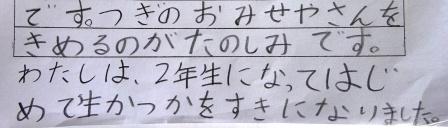 です。つぎのおみせやさんを
きめるのがたのしみです。
わたしは、2年生になってはじ
めて生かつかをすきになりました。